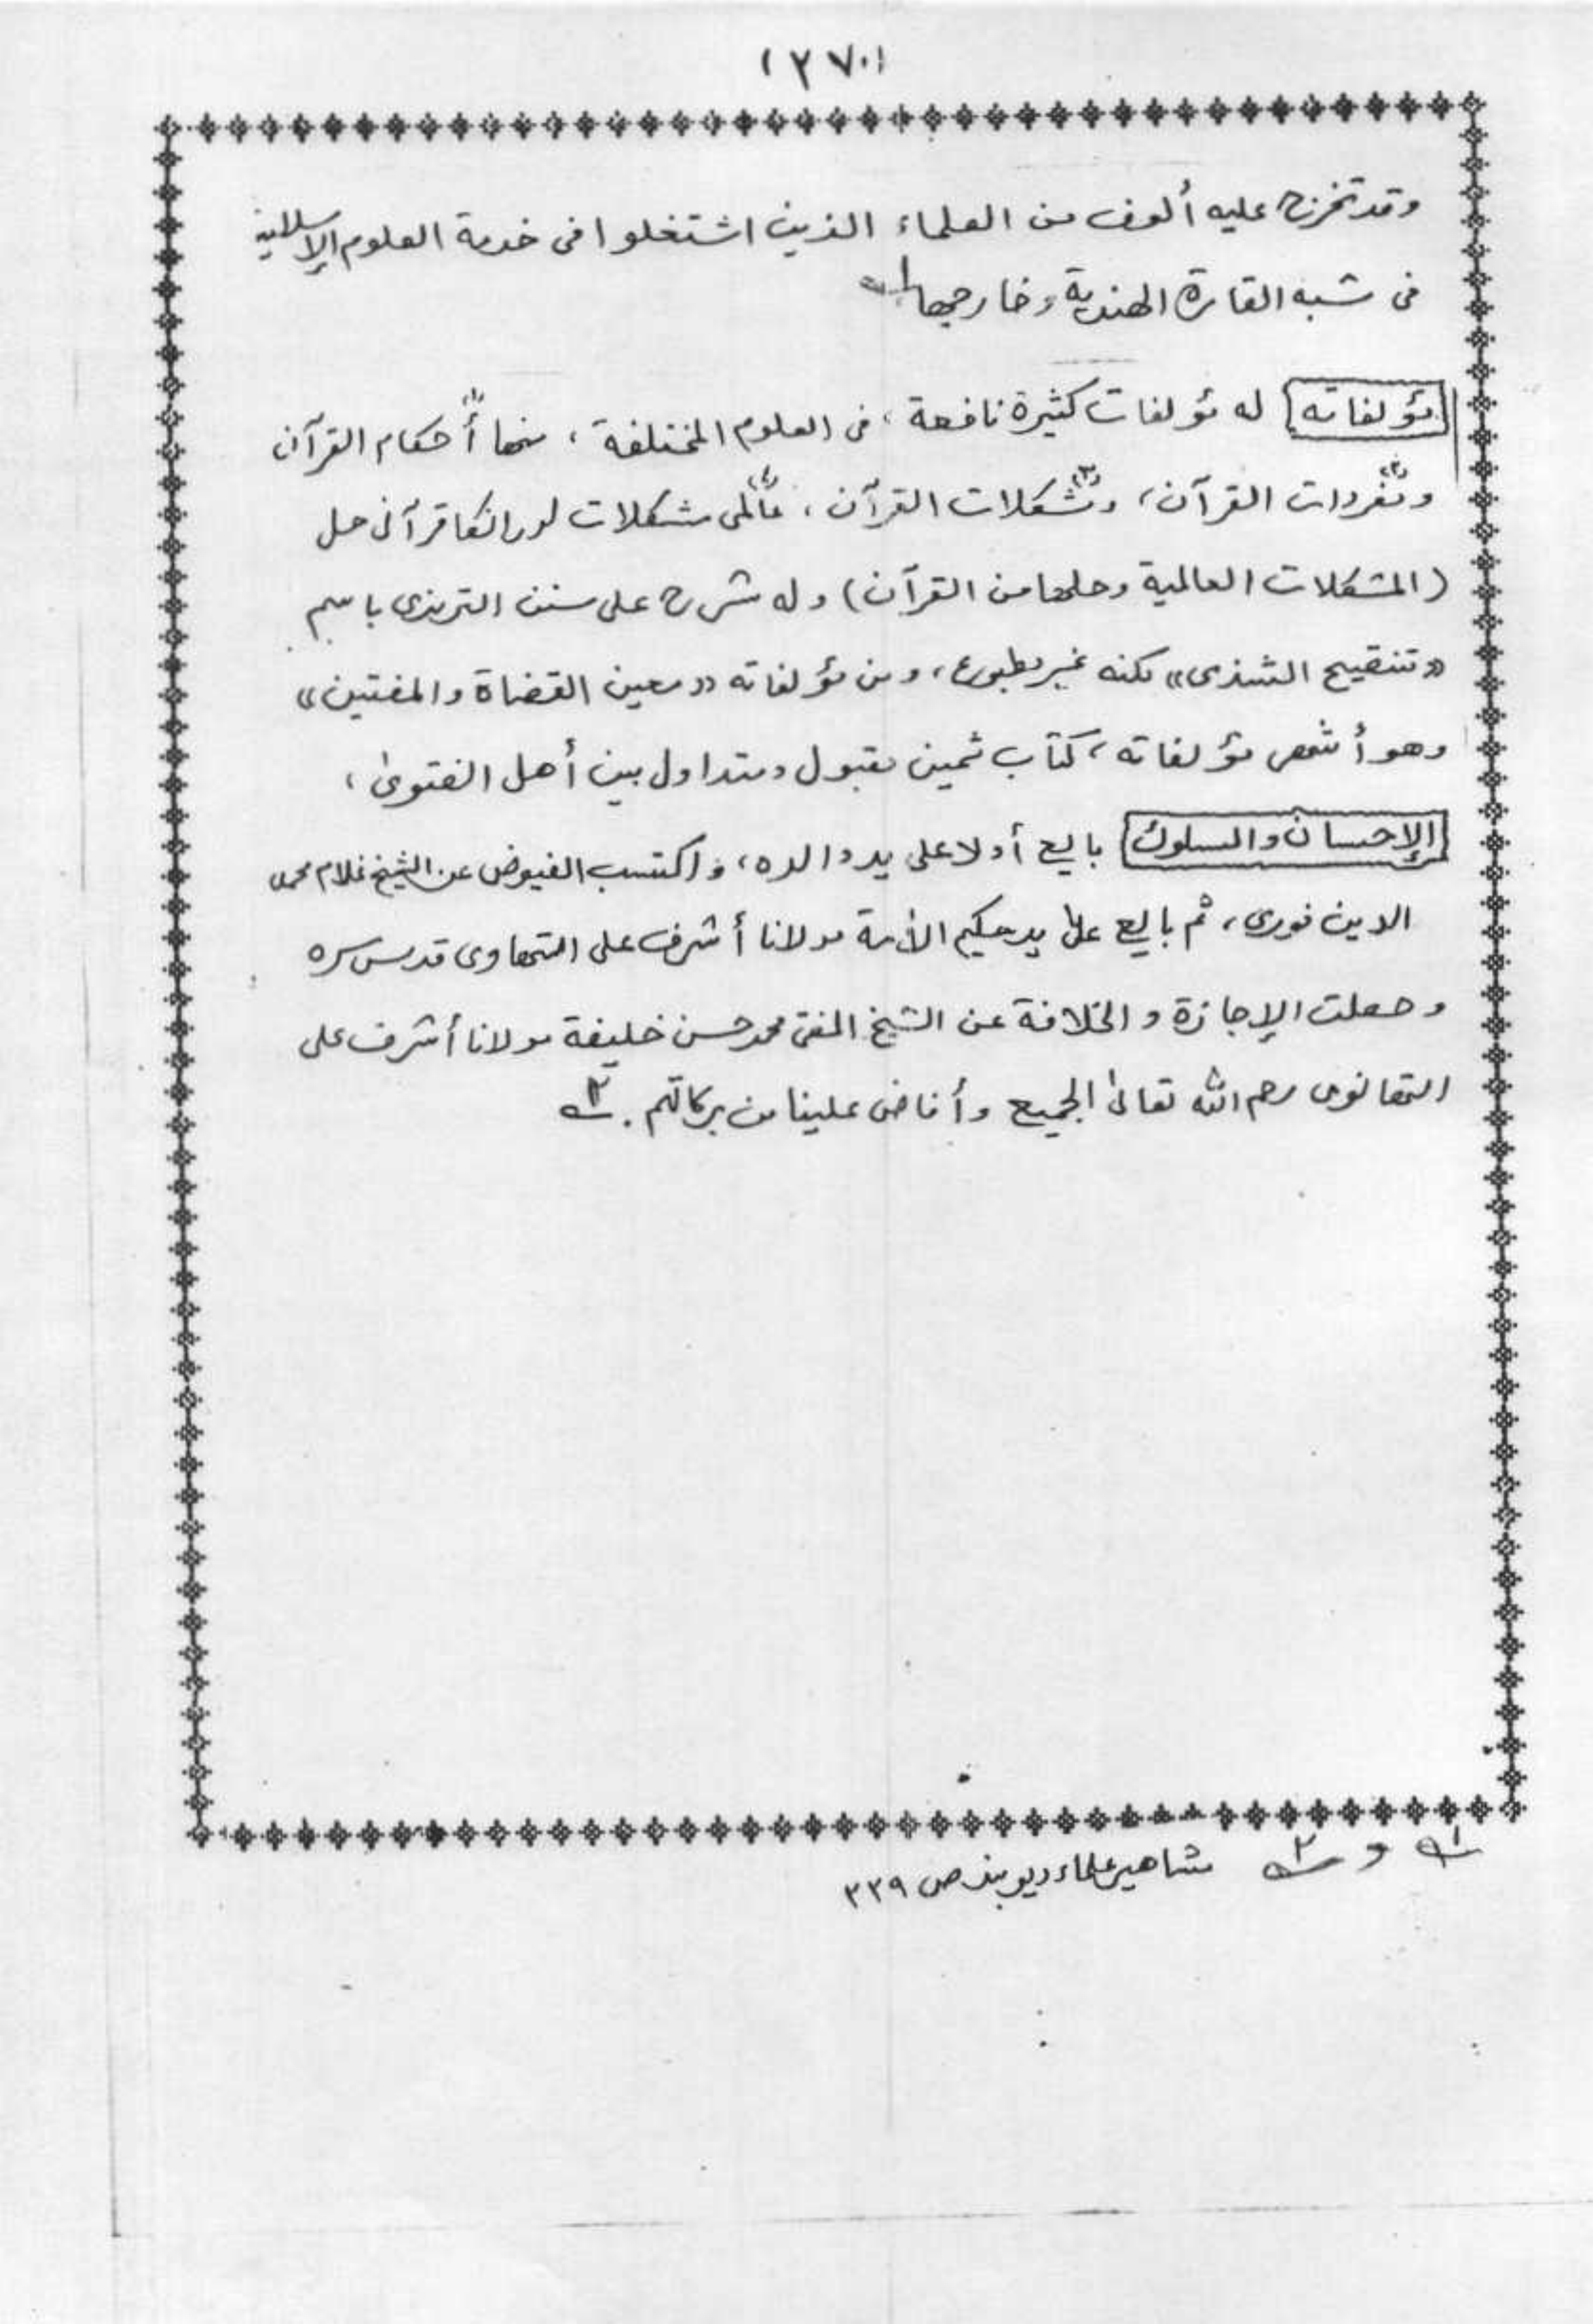 (٢٧٠)
وقد تخرج عليه ألوف من العلماء الذين اشتغلوا فى خدمة العلوم الإسلامية
فى شبه القارة الهندية وخارجها ١ـ
مؤلفاته له مؤلفات كثيرة نافعة، فى العلوم المختلفة، منها (١) أحكام القرآن
و(٢) مفردات القرآن، و(٣) مشكلات القرآن، (٤) عالمى مشكلات اور انكا قرآنى حل
(المشكلات العالمية وحلها من القرآن) وله شرح على سنن الترمذى باسم
«تنقيح الشذى» لكنه غير مطبوع، ومن مؤلفاته «معين القضاة والمفتين»
وهو أشهر مؤلفاته، كتاب ثمين مقبول ومتداول بين أهل الفتوىٰ،
الإحسان والسلوك بايع أولا على يد والده، واكتسب الفيوض عن الشيخ غلام محمد
الدين فورى، ثم بايع علىٰ يد حكيم الأمة مولانا أشرف على التهاوى قدس سره
وحصلت الإجازة والخلافة عن الشيخ المفتى محمد حسن خليفة مولانا أشرف على
التهانوى رحم الله تعالىٰ الجميع وأفاض علينا من بركاتهم. ٢ـ
١ـ و ٢ـ مشاهير علماء ديوبند ص ٣٣٩